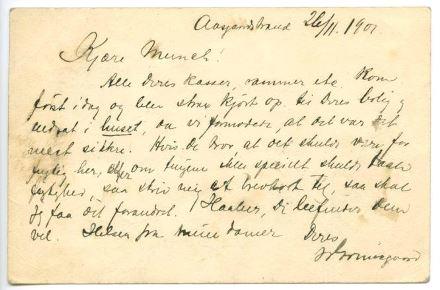 Aasgaardstrand 26/11. 1901
Kjære Munch!
Alle Deres kasser, rammer etc. kom
først idag og blev strax kjørt op til Deres bolig og
indsat i huset, da vi formodede, at det var det
mest sikre. Hvis De tror, at det skulde være for
fugtig her, eller om tingene ikke specielt skulde taale
fugtighed, saa skriv mig et brevkort til, saa skal
jeg faa det forandret. Haaber, De befinder Dem
vel. Hilsen fra mine damer
Deres